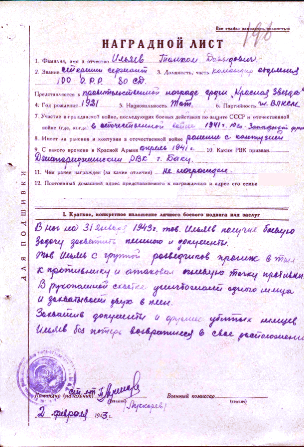 НАГРАДНОЙ ЛИСТ
1. Фамилия, имя и отчество Ильяев
2. Звание старший сержант 3. Должность, часть командир отделения
Представляется к правительственной награде орден Красная Звезда
4. Год рождения 1921 5. Национальность Тат. 6. Партийность чл. ВЛКСМ
7. Участие в гражданской войне, последующих боевых действиях по защите СССР и отечественной
войне (где, когда) в отечественной войне 1941 г. Западный фронт
8. Имеет ли ранения и контузии в отечественной войне ранение и контузия
9. С какого времени в Красной Армии 1941 г. 10. Каким РВК призван
РВК г. Баку.
11. Чем ранее награжден (за какие отличия) не награжден.
12. Постоянный домашний адрес представляемого к награждению и адрес его семьи
ДЛЯ ПОДШИВКИ
I. Краткое, конкретное изложение личного боевого подвига или заслуг
В ночь на 31 1943 г. тов. Ильяев получил боевую
задачу захватить пленного и документы.
Тов. Ильяев с группой разведчиков проник в тыл
к противнику и атаковал огневую точку противника.
В рукопашной схватке уничтожает одного немца
и захватывает двух в плен.
Захватив документы и оружие убитых немцев
Ильяев без потерь возвратился в свое расположение.
Командир (начальник)
Военный комиссар
2 февраля 1943 г.